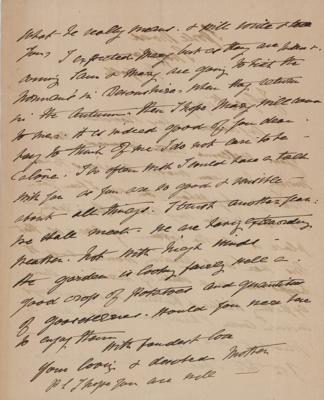 What he really means. & will write & tell
you, I expected Mary but as they are
coming Sam & Mary are going to visit the
in Devonshire. When they return
in the Autumn then I hope Mary will come
to me. It is indeed good of you dear
boy to think of me I do not care to be
alone. I so often wish I could have a talk
with you as you are so good & sensible
about all things. I trust another year
we shall meet. We are having extraordinary
weather. Hot with high winds
the garden is looking fairly well a
good crop of potatoes and quantities
of gooseberries. Would you were here
to enjoy them
With fondest love
Your loving & devoted Mother
P.S. I hope you are well